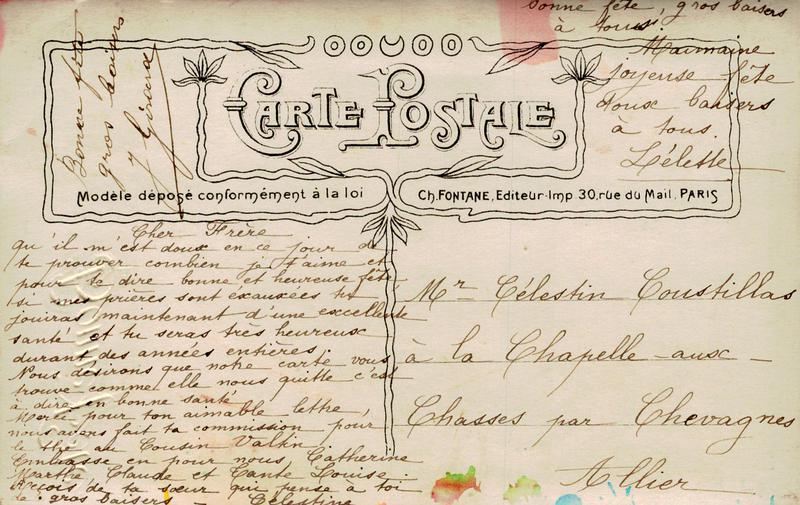 bonne fête, gros baisers
à tous.
Maimaine
joyeuse fête
doux baisers
à tous.
Lélette
Bonne fête
gros baisers
J Girard
CARTE POSTALE
Modèle déposé conformément à la loi
Ch. FONTANE, Editeur-Imp 30, rue du Mail. PARIS
Cher Frère
qu'il m'est doux en ce jour de
te prouver combien je t'aime et
pour te dire bonne et heureuse fête,
si mes prières sont exaucées tu
jouiras maintenant d'une excellente
santé et tu seras très heureux
durant des années entières,
Nous désirons que notre carte vous
trouve comme elle nous quitte c'est
à dire en bonne santé
Merci pour ton aimable lettre,
nous avons fait ta commission pour
le thé au Cousin
Embrasse en pour nous, Catherine
Marthe Claude et Tante Louise
Reçois de ta sœur qui pense à toi
de gros baisers — Célestine
Mr Célestin Coustillas
à la Chapelle-aux-
Chasses par Chevagnes
Allier